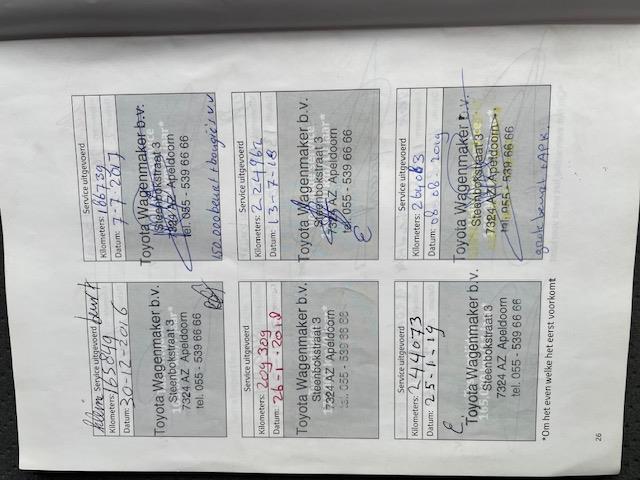 kleine Service uitgevoerd beurt
Kilometers: 165849
Datum: 30-12-2016
Toyota Wagenmaker b.v.
Steenbokstraat 3
7324 AZ Apeldoorn
tel. 055 - 539 66 66
Service uitgevoerd
Kilometers:
Datum: 7-7-2017
Toyota Wagenmaker b.v.
Steenbokstraat 3
7324 AZ Apeldoorn
tel. 055 - 539 66 66
150.000 beurt + bougie's vv
Service uitgevoerd
Kilometers: 209309
Datum: 26-1-2018
Toyota Wagenmaker b.v.
Steenbokstraat 3
7324 AZ Apeldoorn
tel. 055 - 539 66 66
Service uitgevoerd
Kilometers: 224962
Datum: 13-7-18
Toyota Wagenmaker b.v.
Steenbokstraat 3
7324 AZ Apeldoorn
tel. 055 - 539 66 66
E
Service uitgevoerd
Kilometers: 244073
Datum: 25-1-19
E.
Toyota Wagenmaker b.v.
Steenbokstraat 3
7324 AZ Apeldoorn
tel. 055 - 539 66 66
Service uitgevoerd
Kilometers: 261063
Datum: 08-08-2019
Toyota Wagenmaker b.v.
Steenbokstraat 3
7324 AZ Apeldoorn
tel. 055 - 539 66 66
grote beurt + APK
*Om het even welke het eerst voorkomt
26